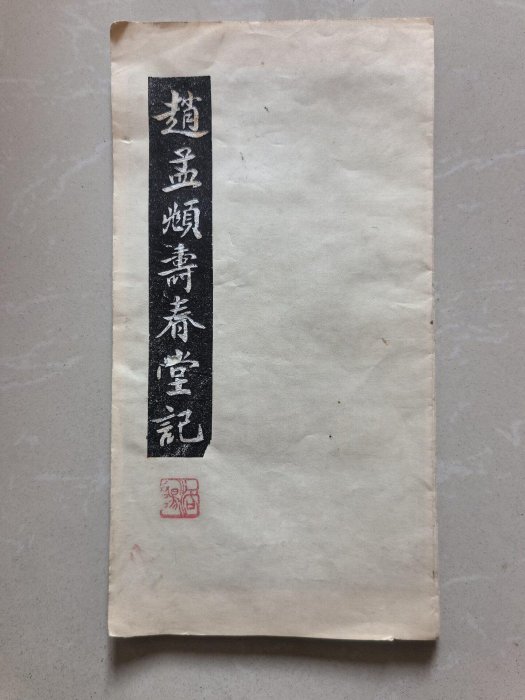 趙孟頫壽春堂記